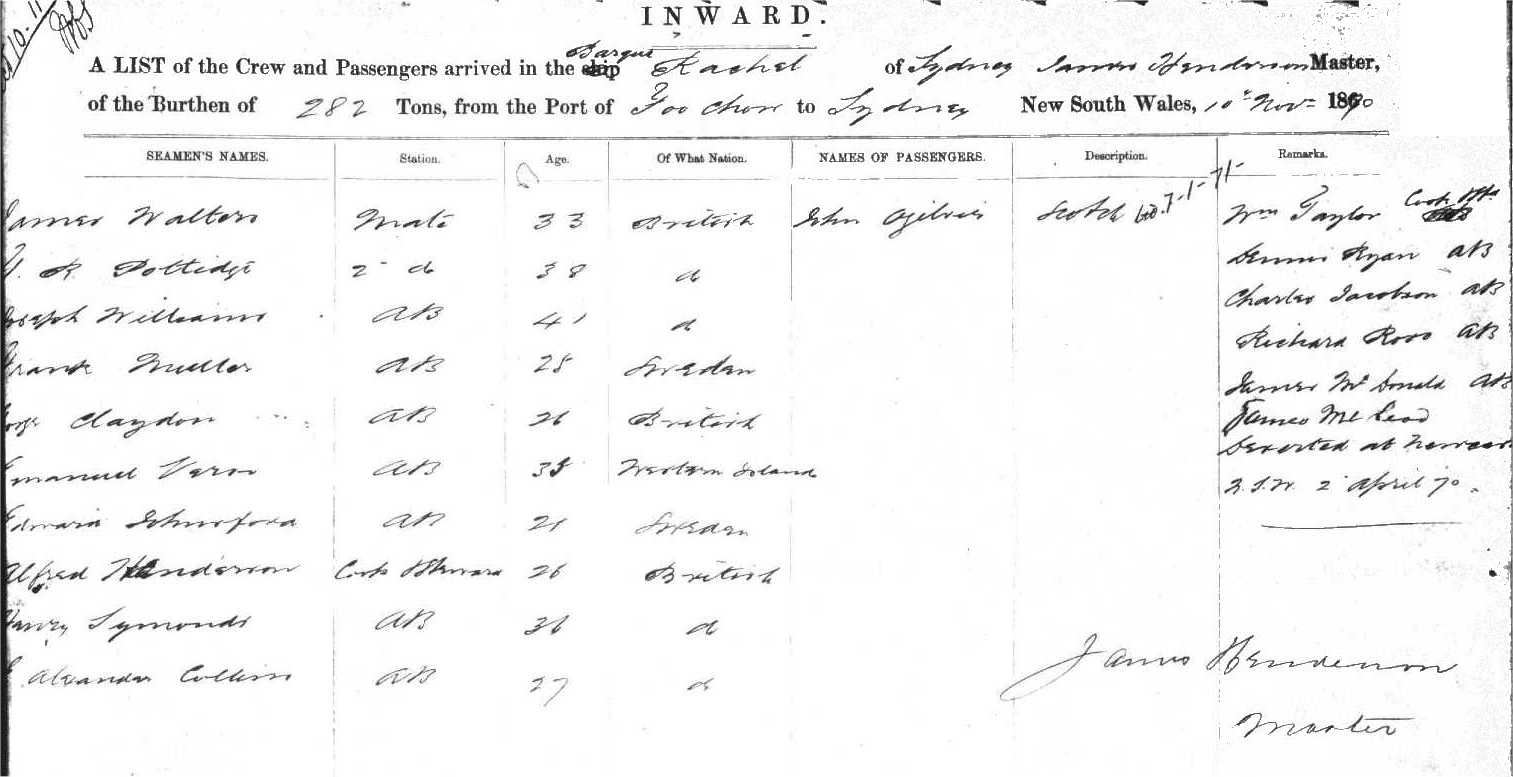 10.11
INWARD.
Barque
A LIST of the Crew and Passengers arrived in the ship Rachel of Sydney James Henderson Master,
of the Burthen of 282 Tons, from the Port of Foo Chow to Sydney New South Wales, 10th Nov 1870
SEAMEN'S NAMES. Station. Age. Of What Nation. NAMES OF PASSENGERS. Description. Remarks.
James Walters Mate 33 British John Ogilvie Scotch 7-1-71 Wm Taylor Cook
R 2d 38 do Dennis Ryan AB
Joseph Williams AB 41 do Charles Jacobson AB
Richard Ross AB
Frank Muller AB 25 Sweden
James McDonald AB
Claydon AB 26 British James McLeod
Deserted at
Emanuel AB 35 Western Island
N.S.W. 2 April 70.
Edward AB 21 Sweden
Alfred Henderson Cook & Steward 26 British
Harry Symonds AB 36 do
Alexander Collins AB 27 do
James Henderson
Master